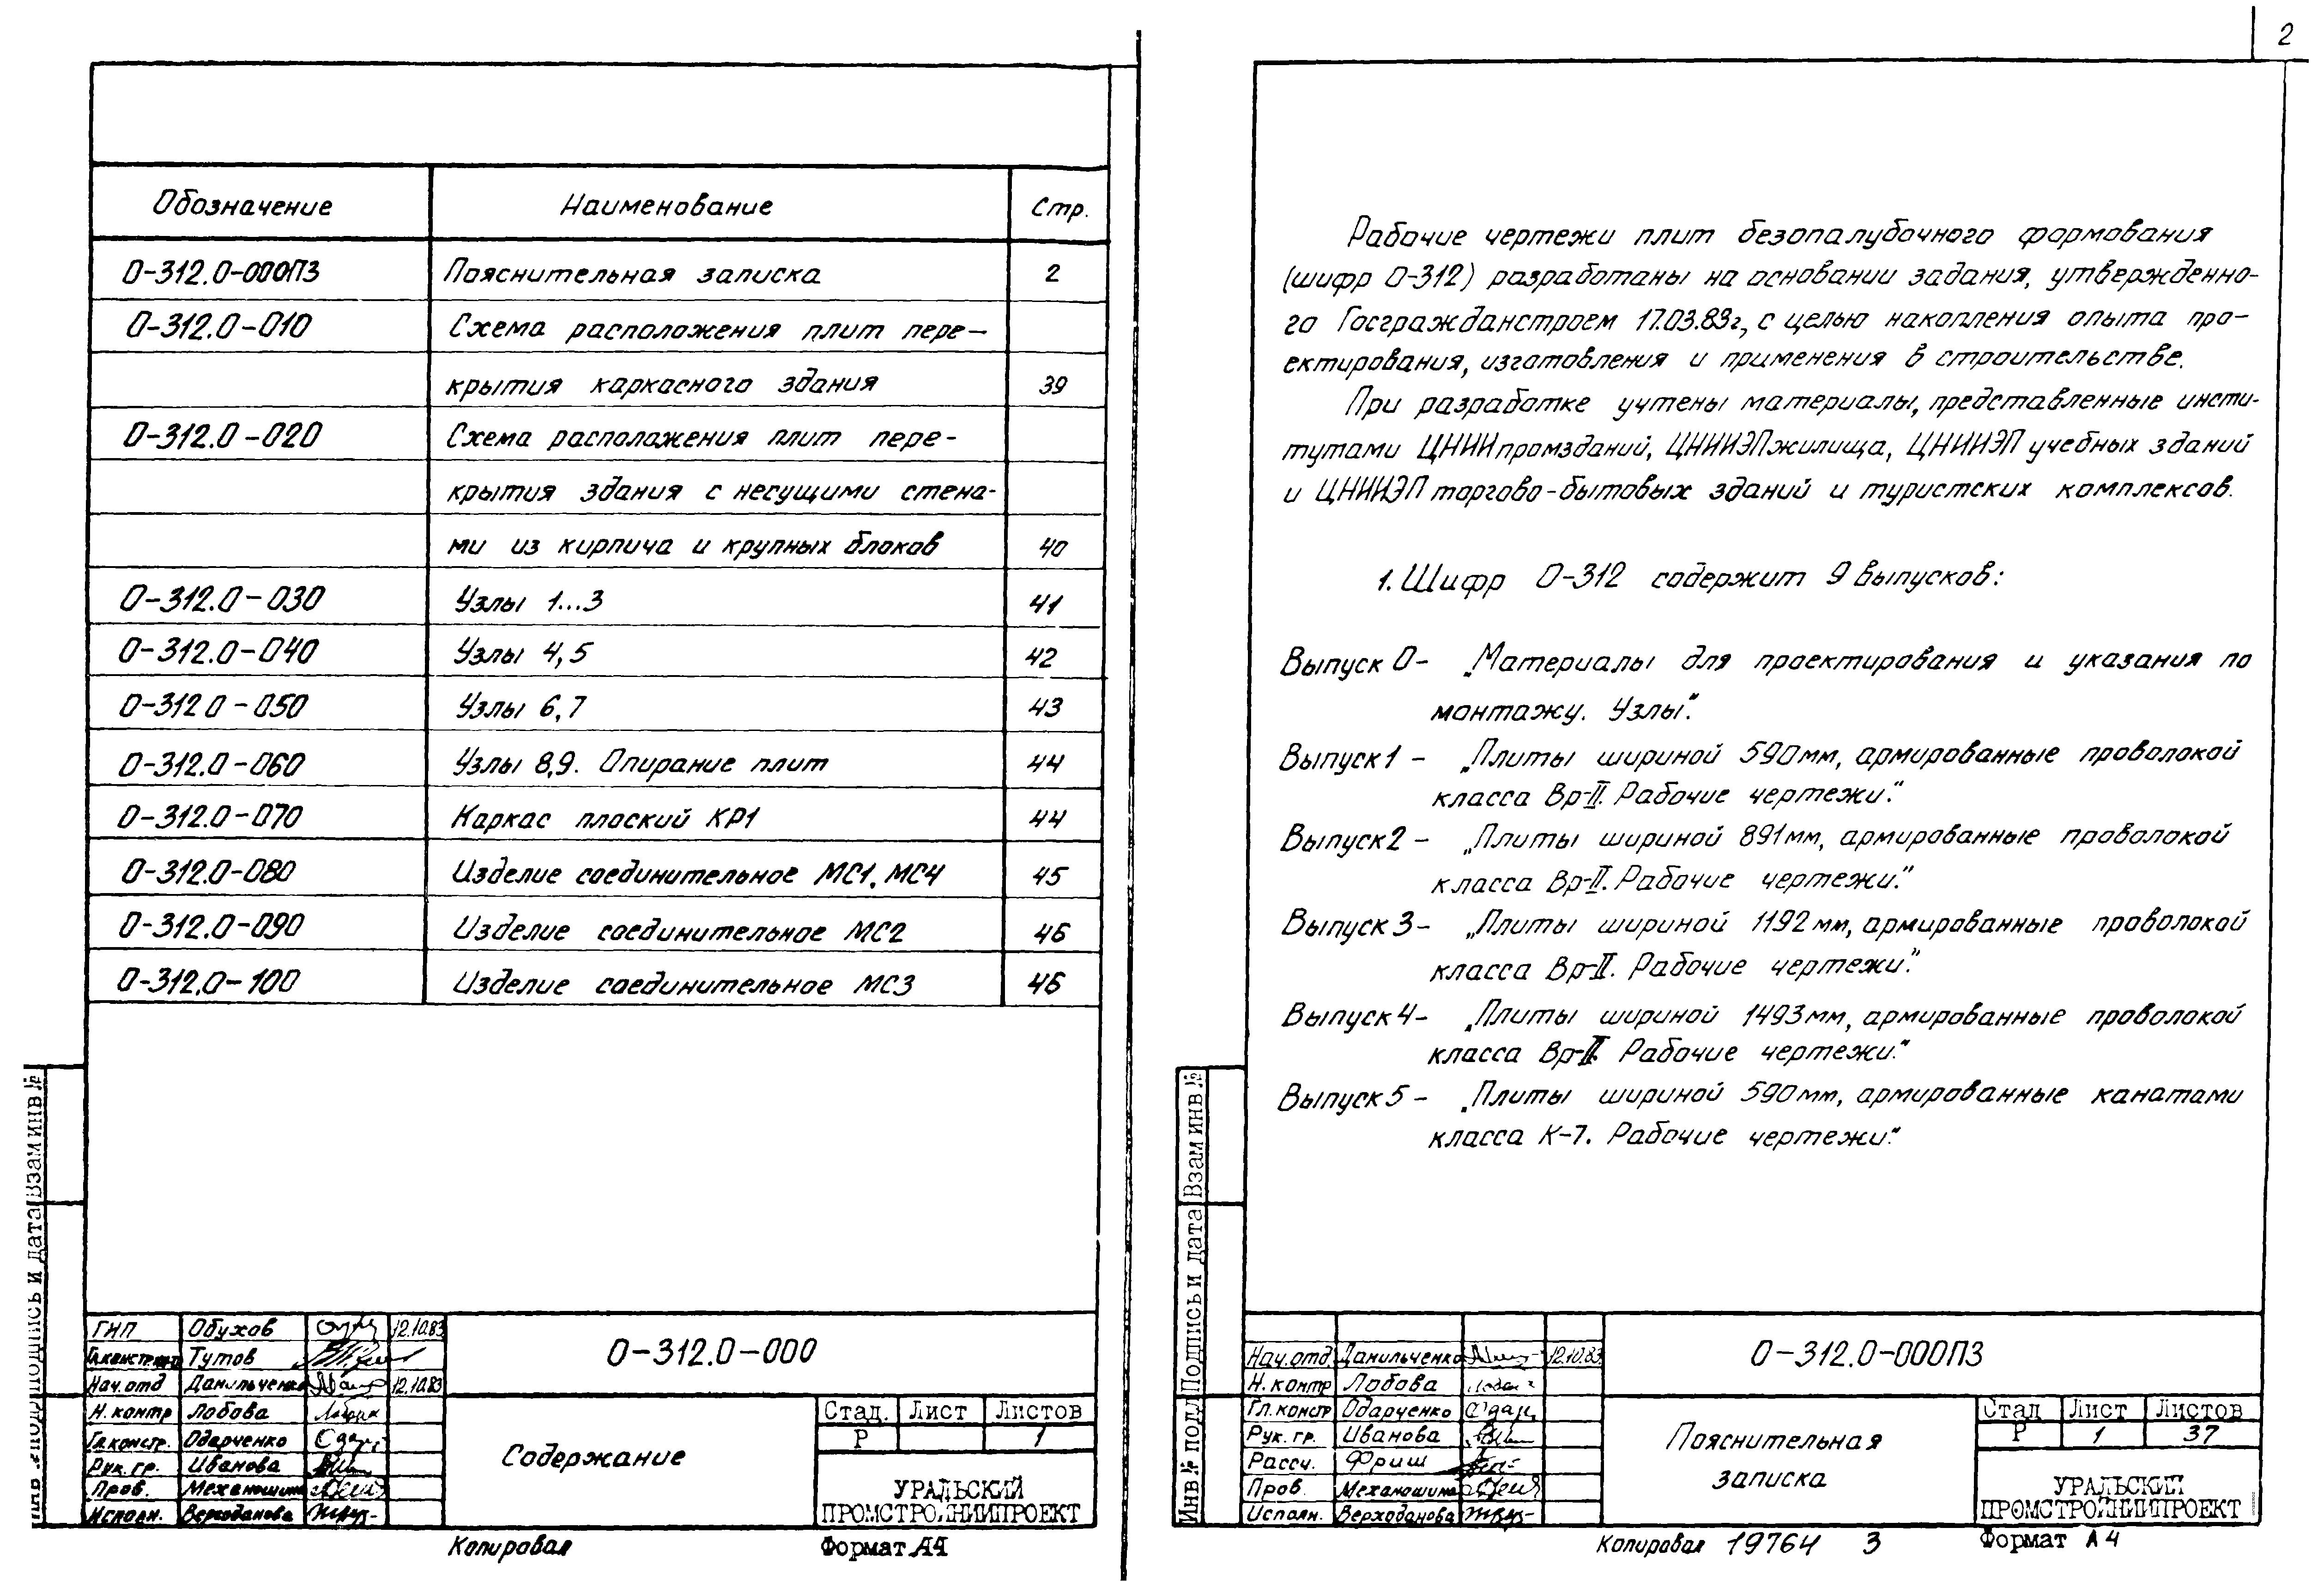 Обозначение Наименование Стр.
О-312.0-000ПЗ Пояснительная записка 2
О-312.0-010 Схема расположения плит пере-
крытия каркасного здания 39
О-312.0-020 Схема расположения плит пере-
крытия здания с несущими стена-
ми из кирпича и крупных блоков 40
О-312.0-030 Узлы 1...3 41
О-312.0-040 Узлы 4,5 42
О-312 0-050 Узлы 6,7 43
О-312.0-060 Узлы 8,9. Опирание плит 44
О-312.0-070 Каркас плоский КР1 44
О-312.0-080 Изделие соединительное МС1, МС4 45
О-312.0-090 Изделие соединительное МС2 46
О-312.0-100 Изделие соединительное МС3 46
Взам инв №
Подпись и дата
ГИП Обухов 12.10.83
Гл.констр. Тутов
Нач.отд Данильченко 12.10.83
Н.контр Лобова
Гл.констр. Одарченко
Рук. гр. Иванова
Пров. Механошина
Исполн. Верходанова
О-312.0-000
Содержание
Стад. Лист Листов
Р 1
УРАЛЬСКИЙ
ПРОМСТРОЙНИИПРОЕКТ
Копировал Формат А4
2
Рабочие чертежи плит безопалубочного формования
(шифр О-312) разработаны на основании задания, утвержденно-
го Госгражданстроем 17.03.83г., с целью накопления опыта про-
ектирования, изготовления и применения в строительстве.
При разработке учтены материалы, представленные инсти-
тутами ЦНИИпромзданий, ЦНИИЭПжилища, ЦНИИЭП учебных зданий
и ЦНИИЭП торгово-бытовых зданий и туристских комплексов.
1. Шифр О-312 содержит 9 выпусков:
Выпуск 0- „Материалы для проектирования и указания по
монтажу. Узлы".
Выпуск 1 - „Плиты шириной 590мм, армированные проволокой
класса Вр-II. Рабочие чертежи".
Выпуск 2 - „Плиты шириной 891мм, армированные проволокой
класса Вр-II. Рабочие чертежи."
Выпуск 3- „Плиты шириной 1192мм, армированные проволокой
класса Вр-II. Рабочие чертежи".
Выпуск 4- „Плиты шириной 1493мм, армированные проволокой
класса Вр-II Рабочие чертежи."
Выпуск 5 - „Плиты шириной 590мм, армированные канатами
класса К-7. Рабочие чертежи."
Взам инв №
Подпись и дата
Инв № подл
Нач.отд. Данильченко 12.10.83
Н.контр Лобова
Гл.констр Одарченко
Рук. гр. Иванова
Рассч. Фриш
Пров. Механошина
Исполн. Верходанова
О-312.0-000ПЗ
Пояснительная
записка
Стад Лист Листов
Р 1 37
УРАЛЬСКИЙ
ПРОМСТРОЙНИИПРОЕКТ
Копировал 19764 3 Формат А4